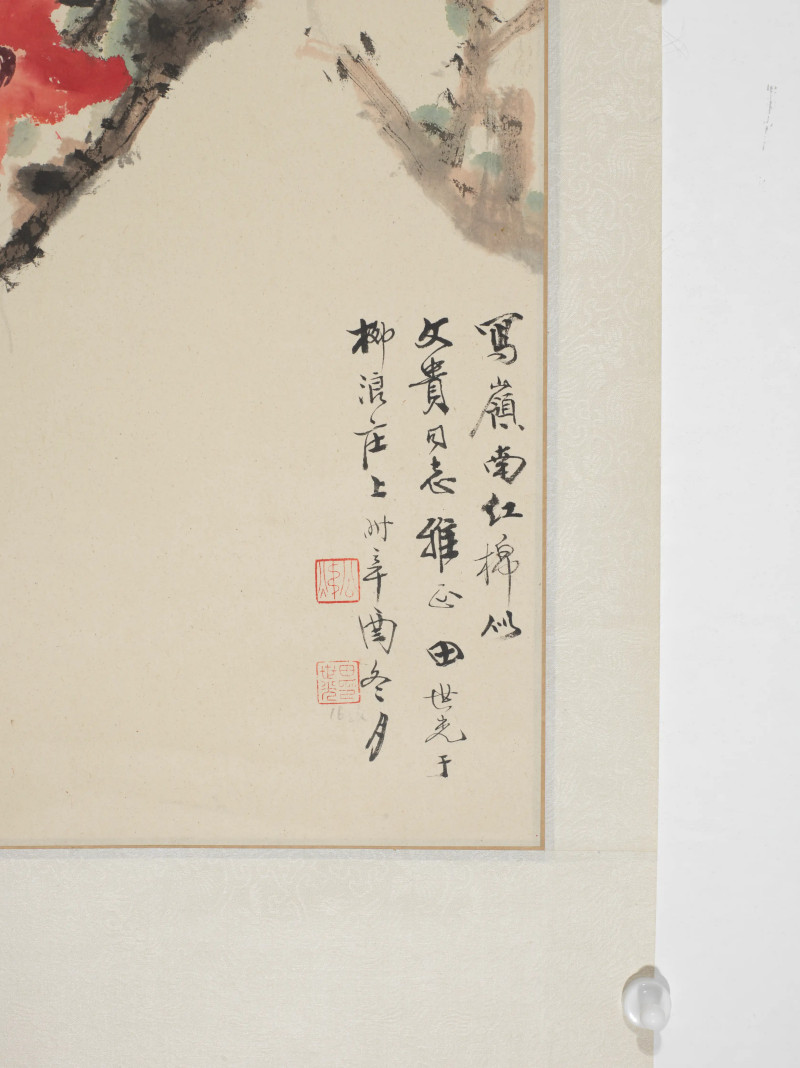 寫嶺南红棉似
文貴同志雅正田世光于
柳浪庄上时辛酉冬月
田世光